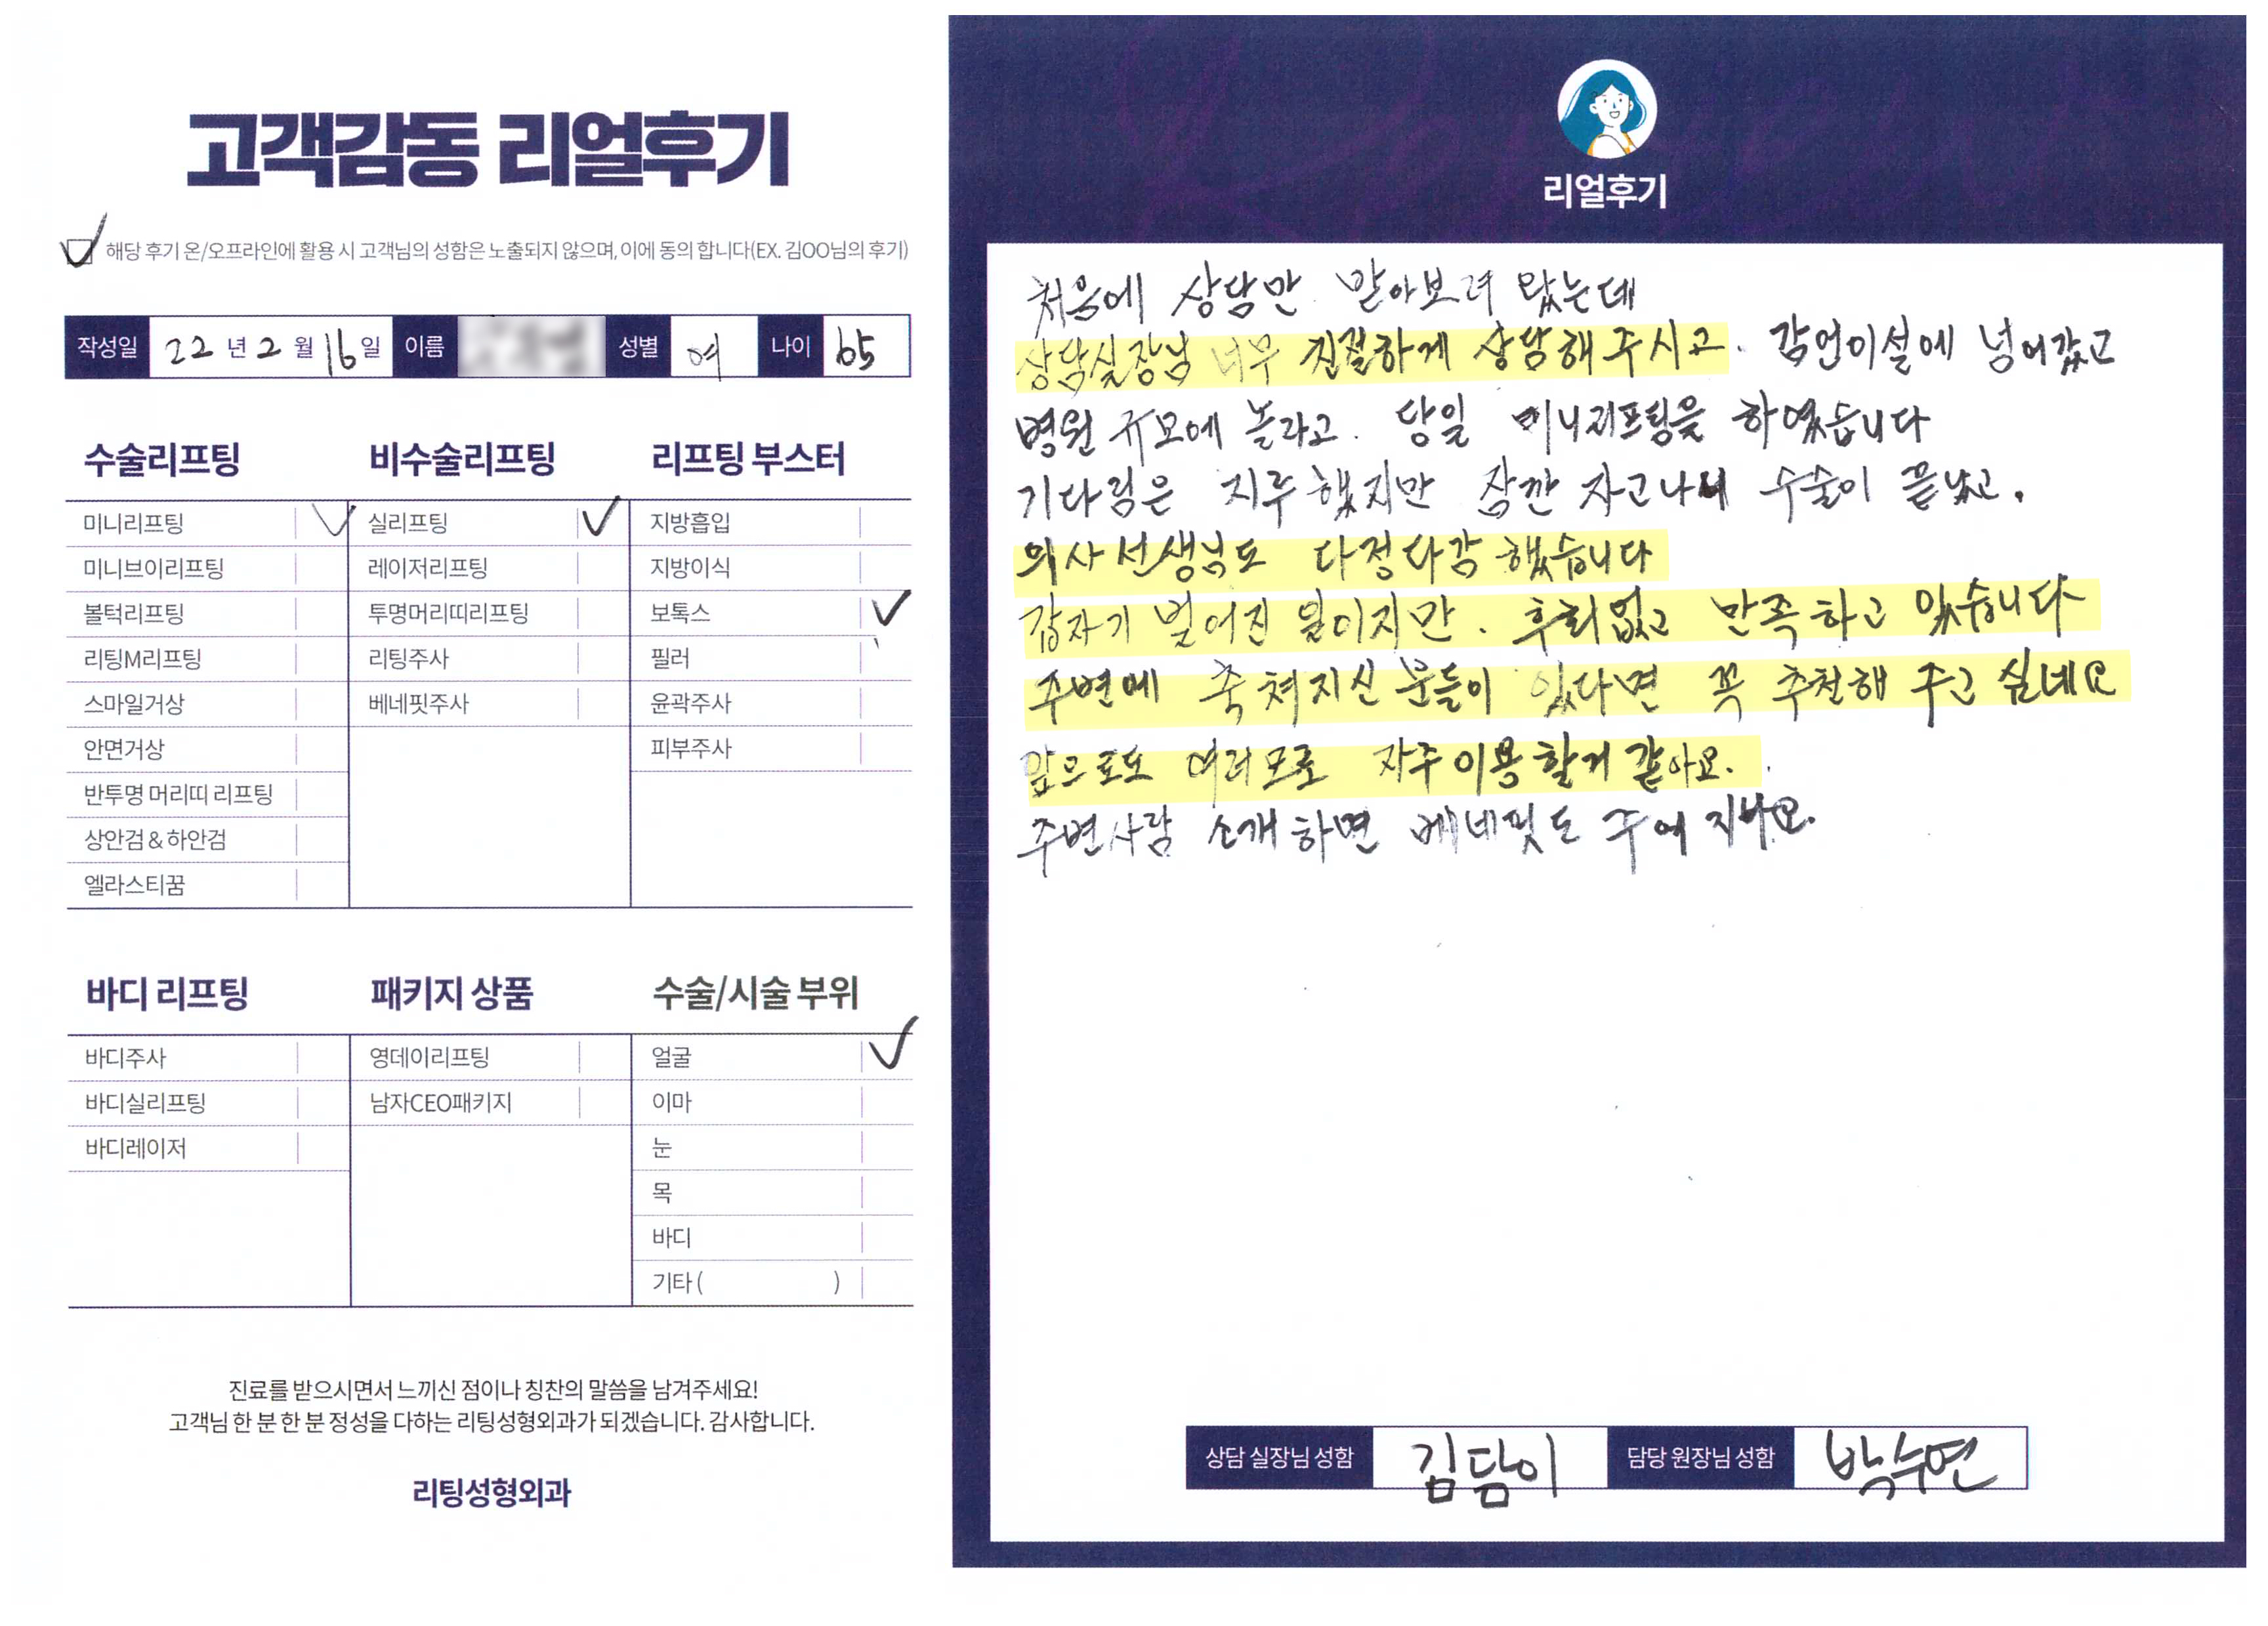 고객감동 리얼후기
해당 후기 온/오프라인에 활용 시 고객님의 성함은 노출되지 않으며, 이에 동의 합니다(EX. 김OO님의 후기)
작성일 22년 2월 16일 이름 성별 여 나이 65
수술리프팅 비수술리프팅 리프팅 부스터
미니리프팅 실리프팅 지방흡입
미니브이리프팅 레이저리프팅 지방이식
볼턱리프팅 투명머리띠리프팅 보톡스
리팅M리프팅 리팅주사 필러
스마일거상 베네핏주사 윤곽주사
안면거상 피부주사
반투명 머리띠 리프팅
상안검 & 하안검
엘라스티꿈
바디 리프팅 패키지 상품 수술/시술 부위
바디주사 영데이리프팅 얼굴
바디실리프팅 남자CEO패키지 이마
바디레이저 눈
목
바디
기타 ( )
진료를 받으시면서 느끼신 점이나 칭찬의 말씀을 남겨주세요!
고객님 한 분 한 분 정성을 다하는 리팅성형외과가 되겠습니다. 감사합니다.
리팅성형외과
리얼후기
처음에 상담만 받아보려 왔는데
상담실장님 너무 친절하게 상담해 주시고. 감언이설에 넘어갔고
병원 규모에 놀라고. 당일 미니리프팅을 하였습니다
기다림은 지루했지만 잠깐 자고나니 수술이 끝났고.
의사선생님도 다정다감 했습니다
갑자기 벌어진 일이지만. 후회없고 만족하고 있습니다
주변에 축쳐지신 분들이 있다면 꼭 추천해 주고 싶네요
앞으로도 여러모로 자주 이용할거 같아요.
주변사람 소개하면 베네핏도 주어 지나요.
상담 실장님 성함 김담이 담당 원장님 성함 박수연